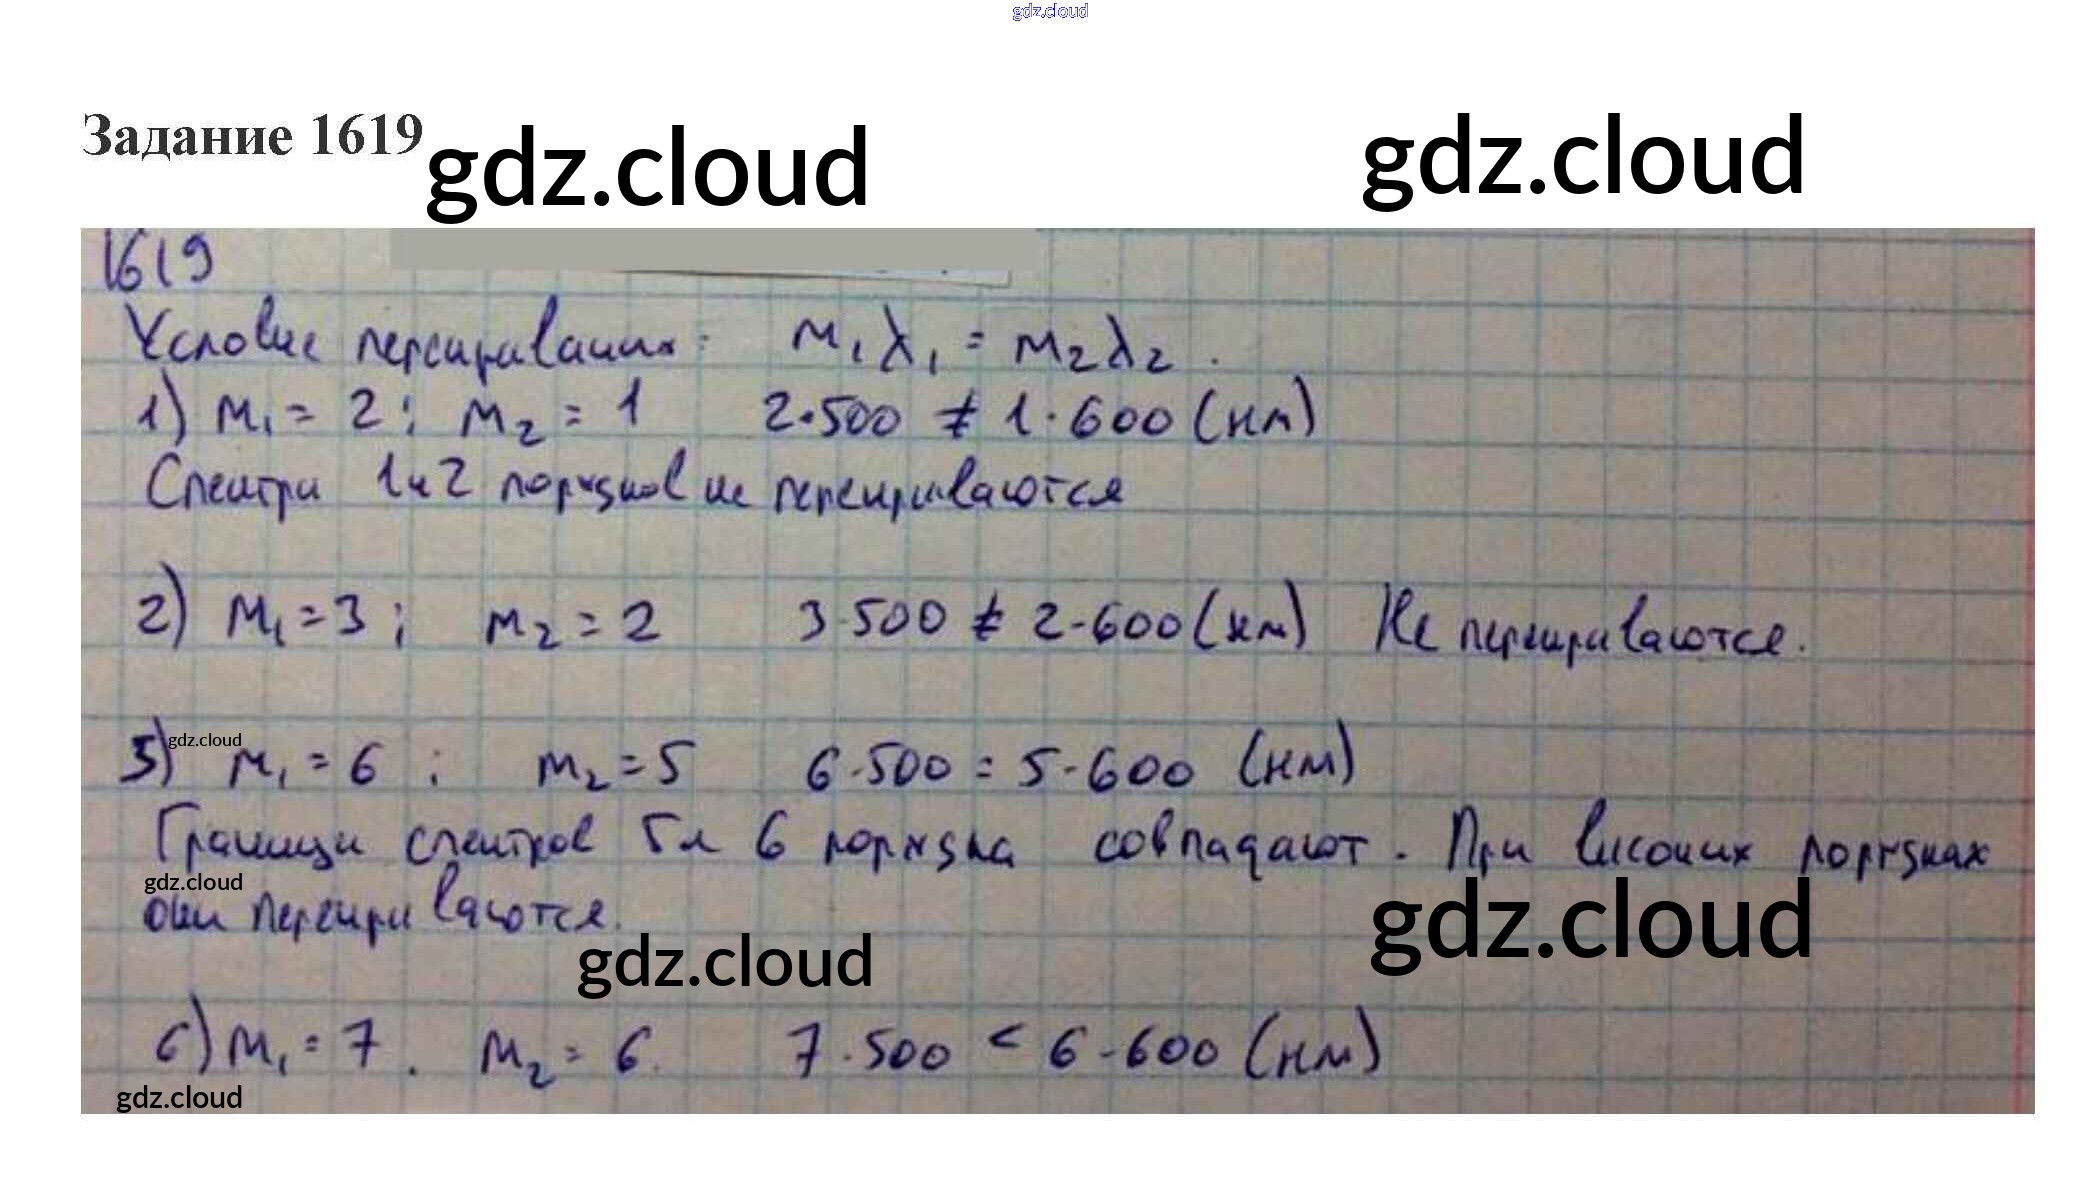 gdz.cloud
Задание 1619
gdz.cloud
gdz.cloud
1619
Условие перекривания: m₁λ₁ = m₂λ₂.
1) m₁ = 2; m₂ = 1 2·500 ≠ 1·600 (нм)
Спектри 1 и 2 порядков не перекриваются
2) m₁ = 3; m₂ = 2 3·500 ≠ 2·600 (нм) Не перекриваются.
5) gdz.cloud m₁ = 6; m₂ = 5 6·500 = 5·600 (нм)
Граници спектров 5 и 6 порядка совпадают. При високих порядках
gdz.cloud
они перекриваются.
gdz.cloud
gdz.cloud
6) m₁ = 7. m₂ = 6. 7·500 < 6·600 (нм)
gdz.cloud